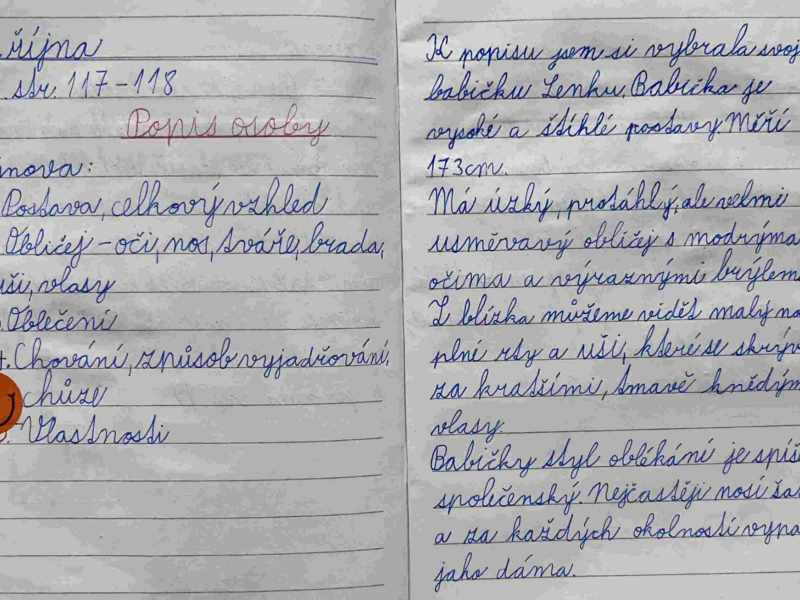 . října
str. 117-118
Popis osoby
nova:
Postava, celkový vzhled
Obličej - oči, nos, tváře, brada,
uši, vlasy
Oblečení
4. Chování, způsob vyjadřování,
chůze
Vlastnosti
K popisu jsem si vybrala svoj
babičku Lenku. Babička je
vysoké a štíhlé postavy. Měří
173cm.
Má úzký, protáhlý, ale velmi
usměvavý obličej s modrýma
očima a výraznými brýlem
Z blízka můžeme vidět malý no
plné rty a uši, které se skrýv
za kratšími, tmavě hnědým
vlasy
Babičky styl oblékání je spíš
společenský. Nejčastěji nosí ša
a za každých okolností vypa
jako dáma.